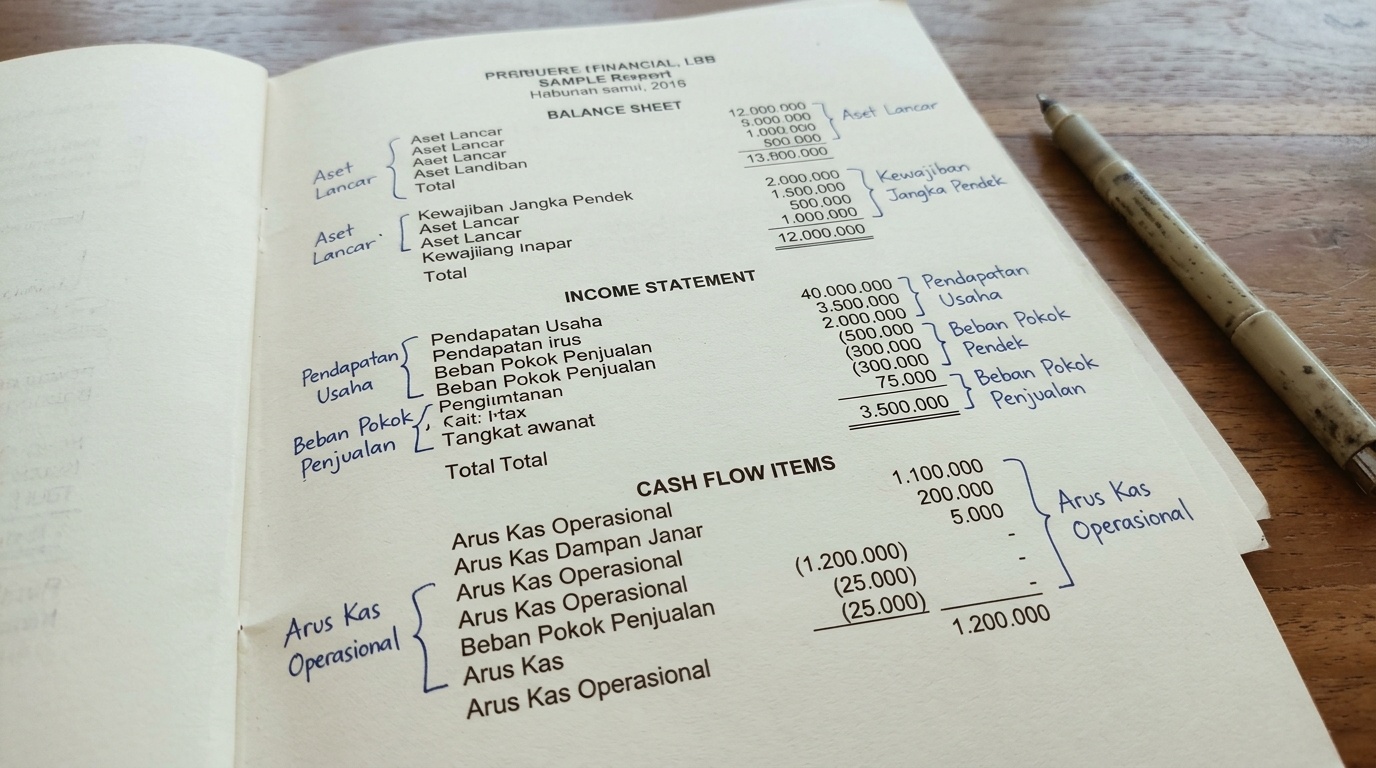 PRBRUERE (FINANCIAL, LBB
SAMPLE Resport
Habunan samil, 2016
BALANCE SHEET
Aset Lancar 12.000.000
Aset Lancar 5.000.000
Aset Lancar 1.000.000
Aset Landiban 500 000
Total 13.800.000
Aset
Lancar
Aset Lancar
Kewajiban Jangka Pendek 2.000.000
Aset Lancar 1.500.000
Aset Lancar 500.000
Kewajiiang Inapar 1.000.000
Total 12.000.000
Aset
Lancar.
Kewajiban
Jangka Pendek
INCOME STATEMENT
Pendapatan Usaha 40.000.000
Pendapatan irus 3.500.000
Beban Pokok Penjualan 2.000.000
Beban Pokok Penjualan (500.000
Pengiimtanan (300.000
Cait: I·tax (300.000
Tangkat awanat 75.000
Total Total 3.500.000
Pendapatan
Usaha
Beban Pokok
Penjualan
Pendapatan
Usaha
Beban Pokok
Pendek
Beban Pokok
Penjualan
CASH FLOW ITEMS
Arus Kas Operasional 1.100.000
Arus Kas Dampan Janar 200.000
Arus Kas Operasional 5.000
Arus Kas Operasional (1.200.000) -
Beban Pokok Penjualan (25.000) -
Arus Kas (25.000) -
Arus Kas Operasional 1.200.000
Arus Kas
Operasional
Arus Kas
Operasional